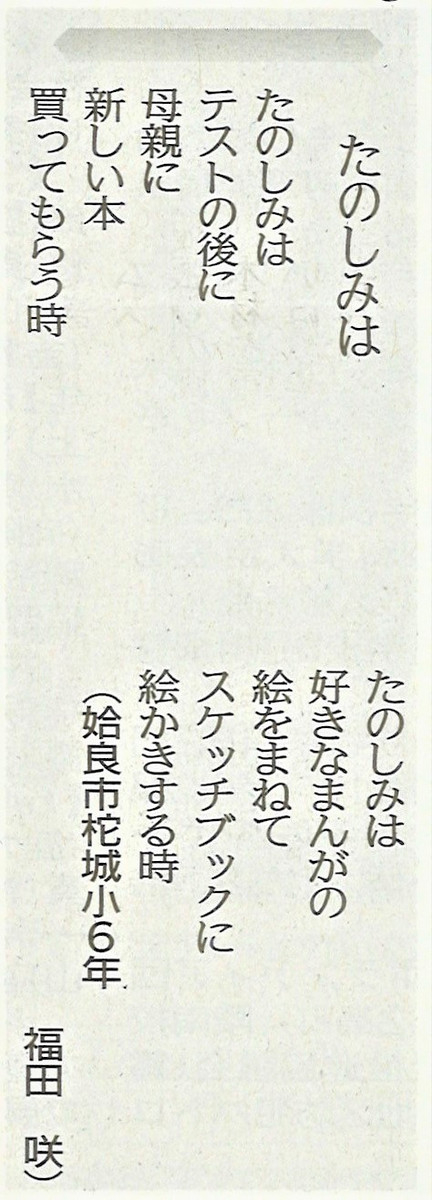 たのしみは
たのしみは
テストの後に
母親に
新しい本
買ってもらう時
たのしみは
好きなまんがの
絵をまねて
スケッチブックに
絵かきする時
（姶良市柁城小６年
福田　咲）